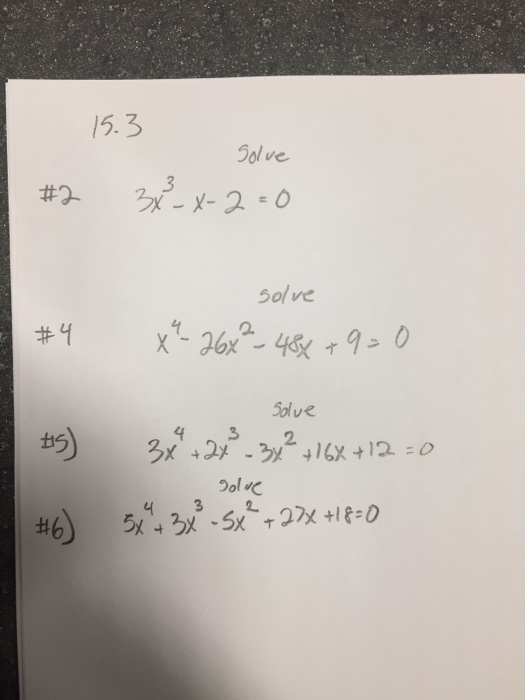 15.3
Solve
#2 3x³ - x - 2 = 0
Solve
#4 x⁴ - 26x² - 48x + 9 = 0
Solve
#5) 3x⁴ + 2x³ - 3x² + 16x + 12 = 0
Solve
#6) 5x⁴ + 3x³ - 5x² + 27x + 18 = 0